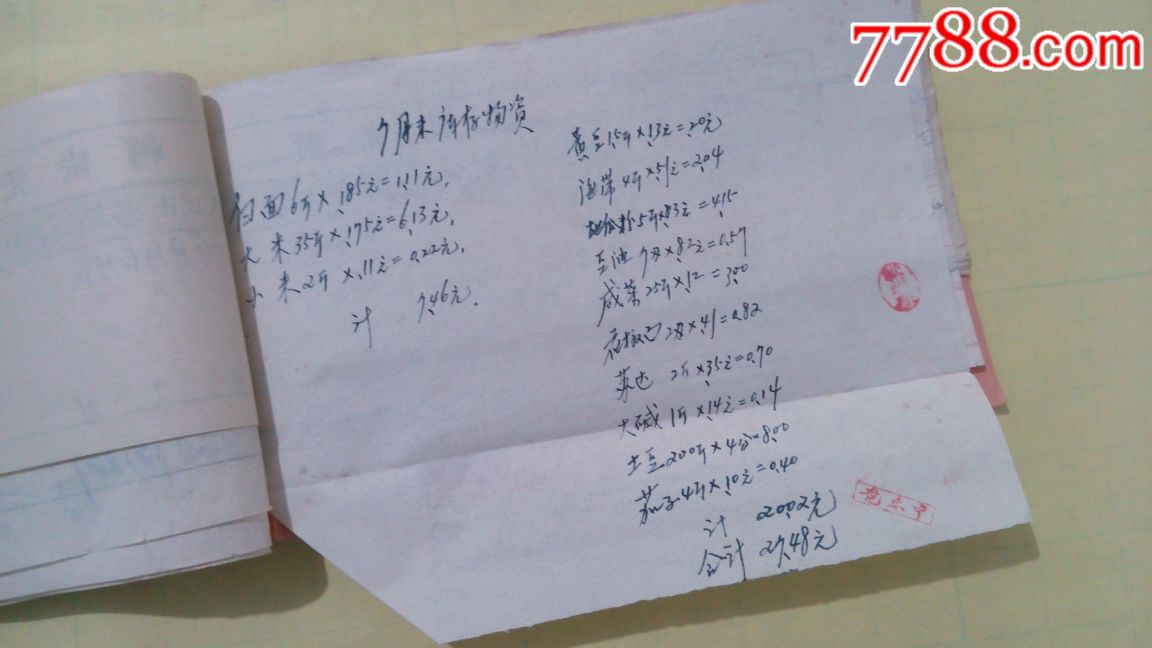 7788.com
7月末库存物资
白面6斤×.185元=1.11元.
大米35斤×.175元=6.13元.
小米2斤×.11元=0.22元.
计 7.46元.
黄豆1.5斤×.13元=.20元
海带4斤×.51元=2.04
地瓜粉5斤×.83元=4.15
豆油7两×.82元=0.57
咸菜25斤×.12=3.00
2两×.41=0.82
苏达 2斤×.35元=0.70
大碱1斤×.14元=0.14
土豆200斤×4分=8.00
茄子4斤×.10元=0.40
计 20.02元
合计 27.48元